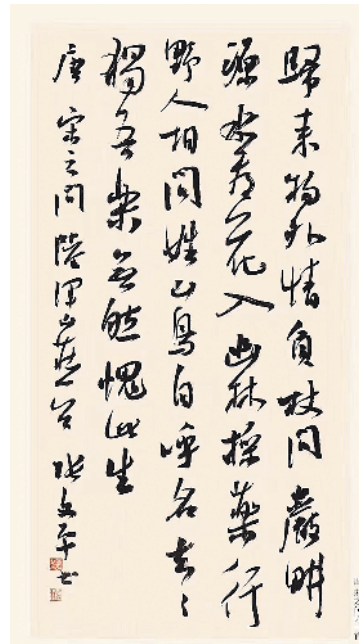 歸来物外情負杖閱巖畊
源水看花入幽林採藥行
野人相問姓山鳥自呼名去々
獨吾樂無能愧此生
唐宋之問陸渾山莊 張文平書